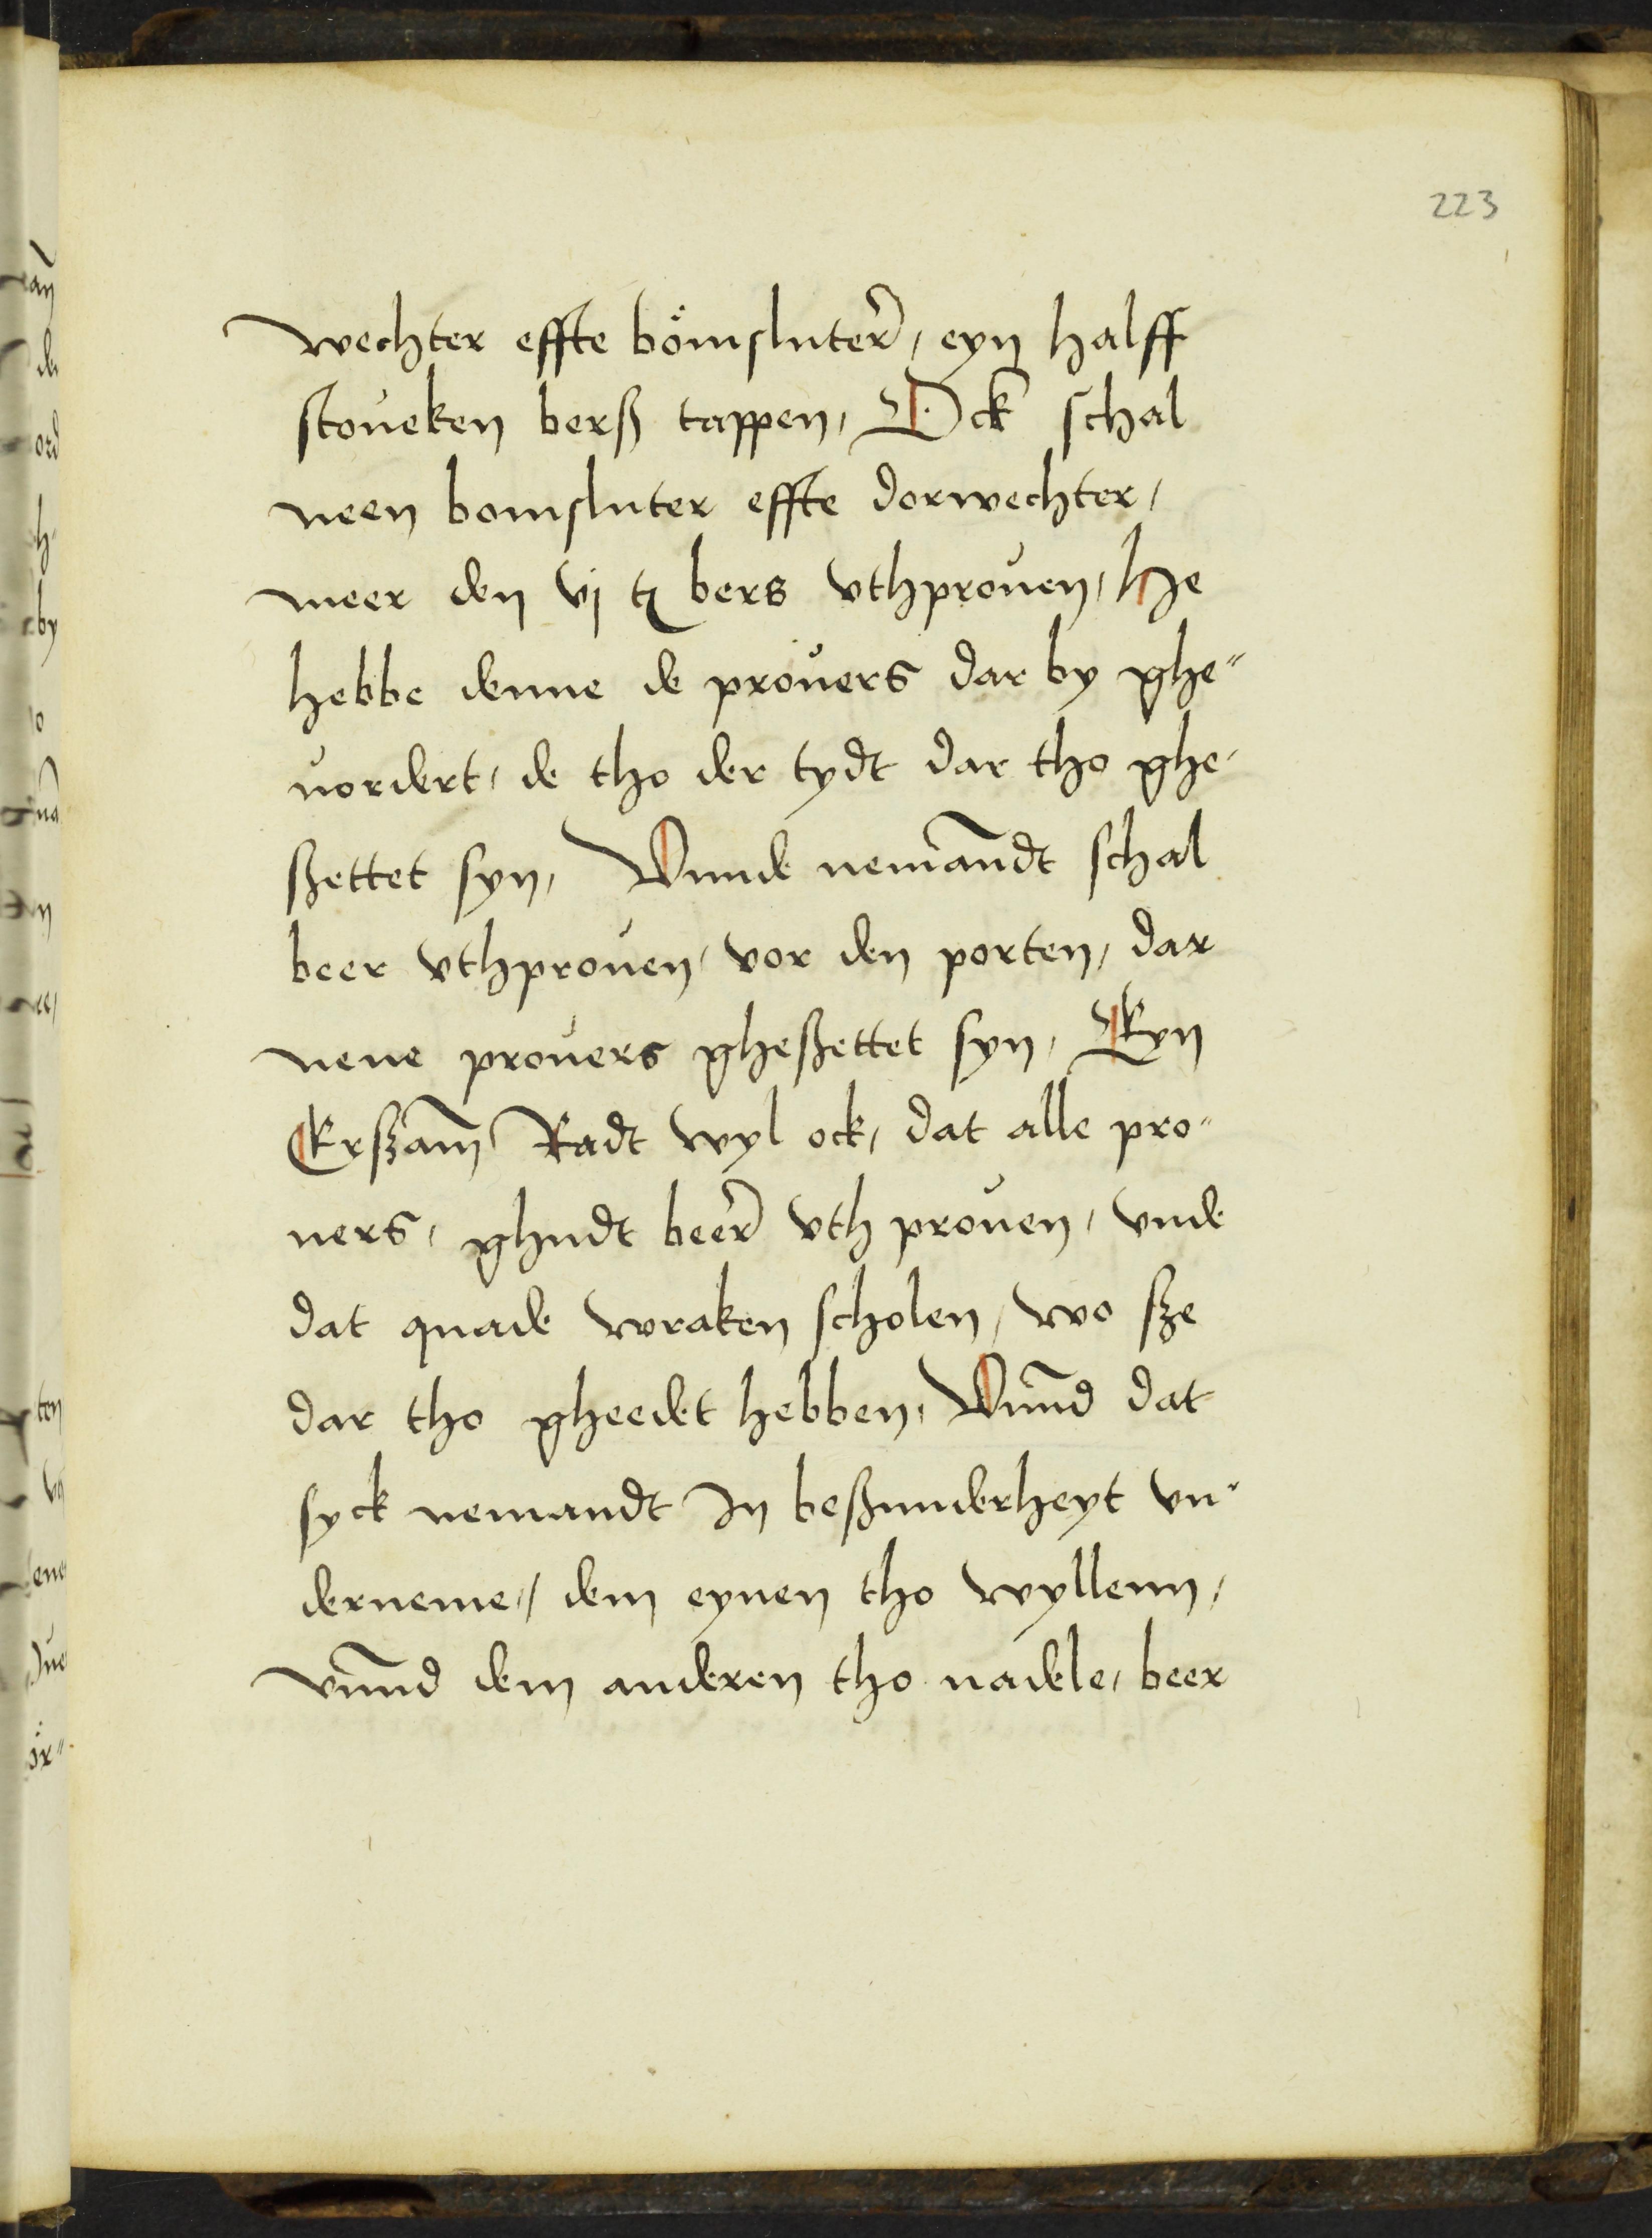 223
wechter effte bömsluter, eyn halff
stoueken berß tappen, Ock schal
neen bomsluter effte dorwechter,
meer den vj tz bers vthprouen, He
hebbe denne de pröuers dar by ghe"
uordert, de tho der tydt dar tho ghe,
ßettet syn, Vnnde nemandt schal
beer vthprouen, vor den porten, dar
nene prouers gheßettet syn, Eyn
Erßam Radt wyl ock, dat alle pro"
uers, ghudt beer vth prouen, vnde
dat quade wraken scholen, wo sze
dar tho gheedet hebben, Vnnd dat
syck nemandt In beßunderheyt vn"
derneme, dem eynen tho wyllenn,
vnnd dem anderen tho nadele, beer